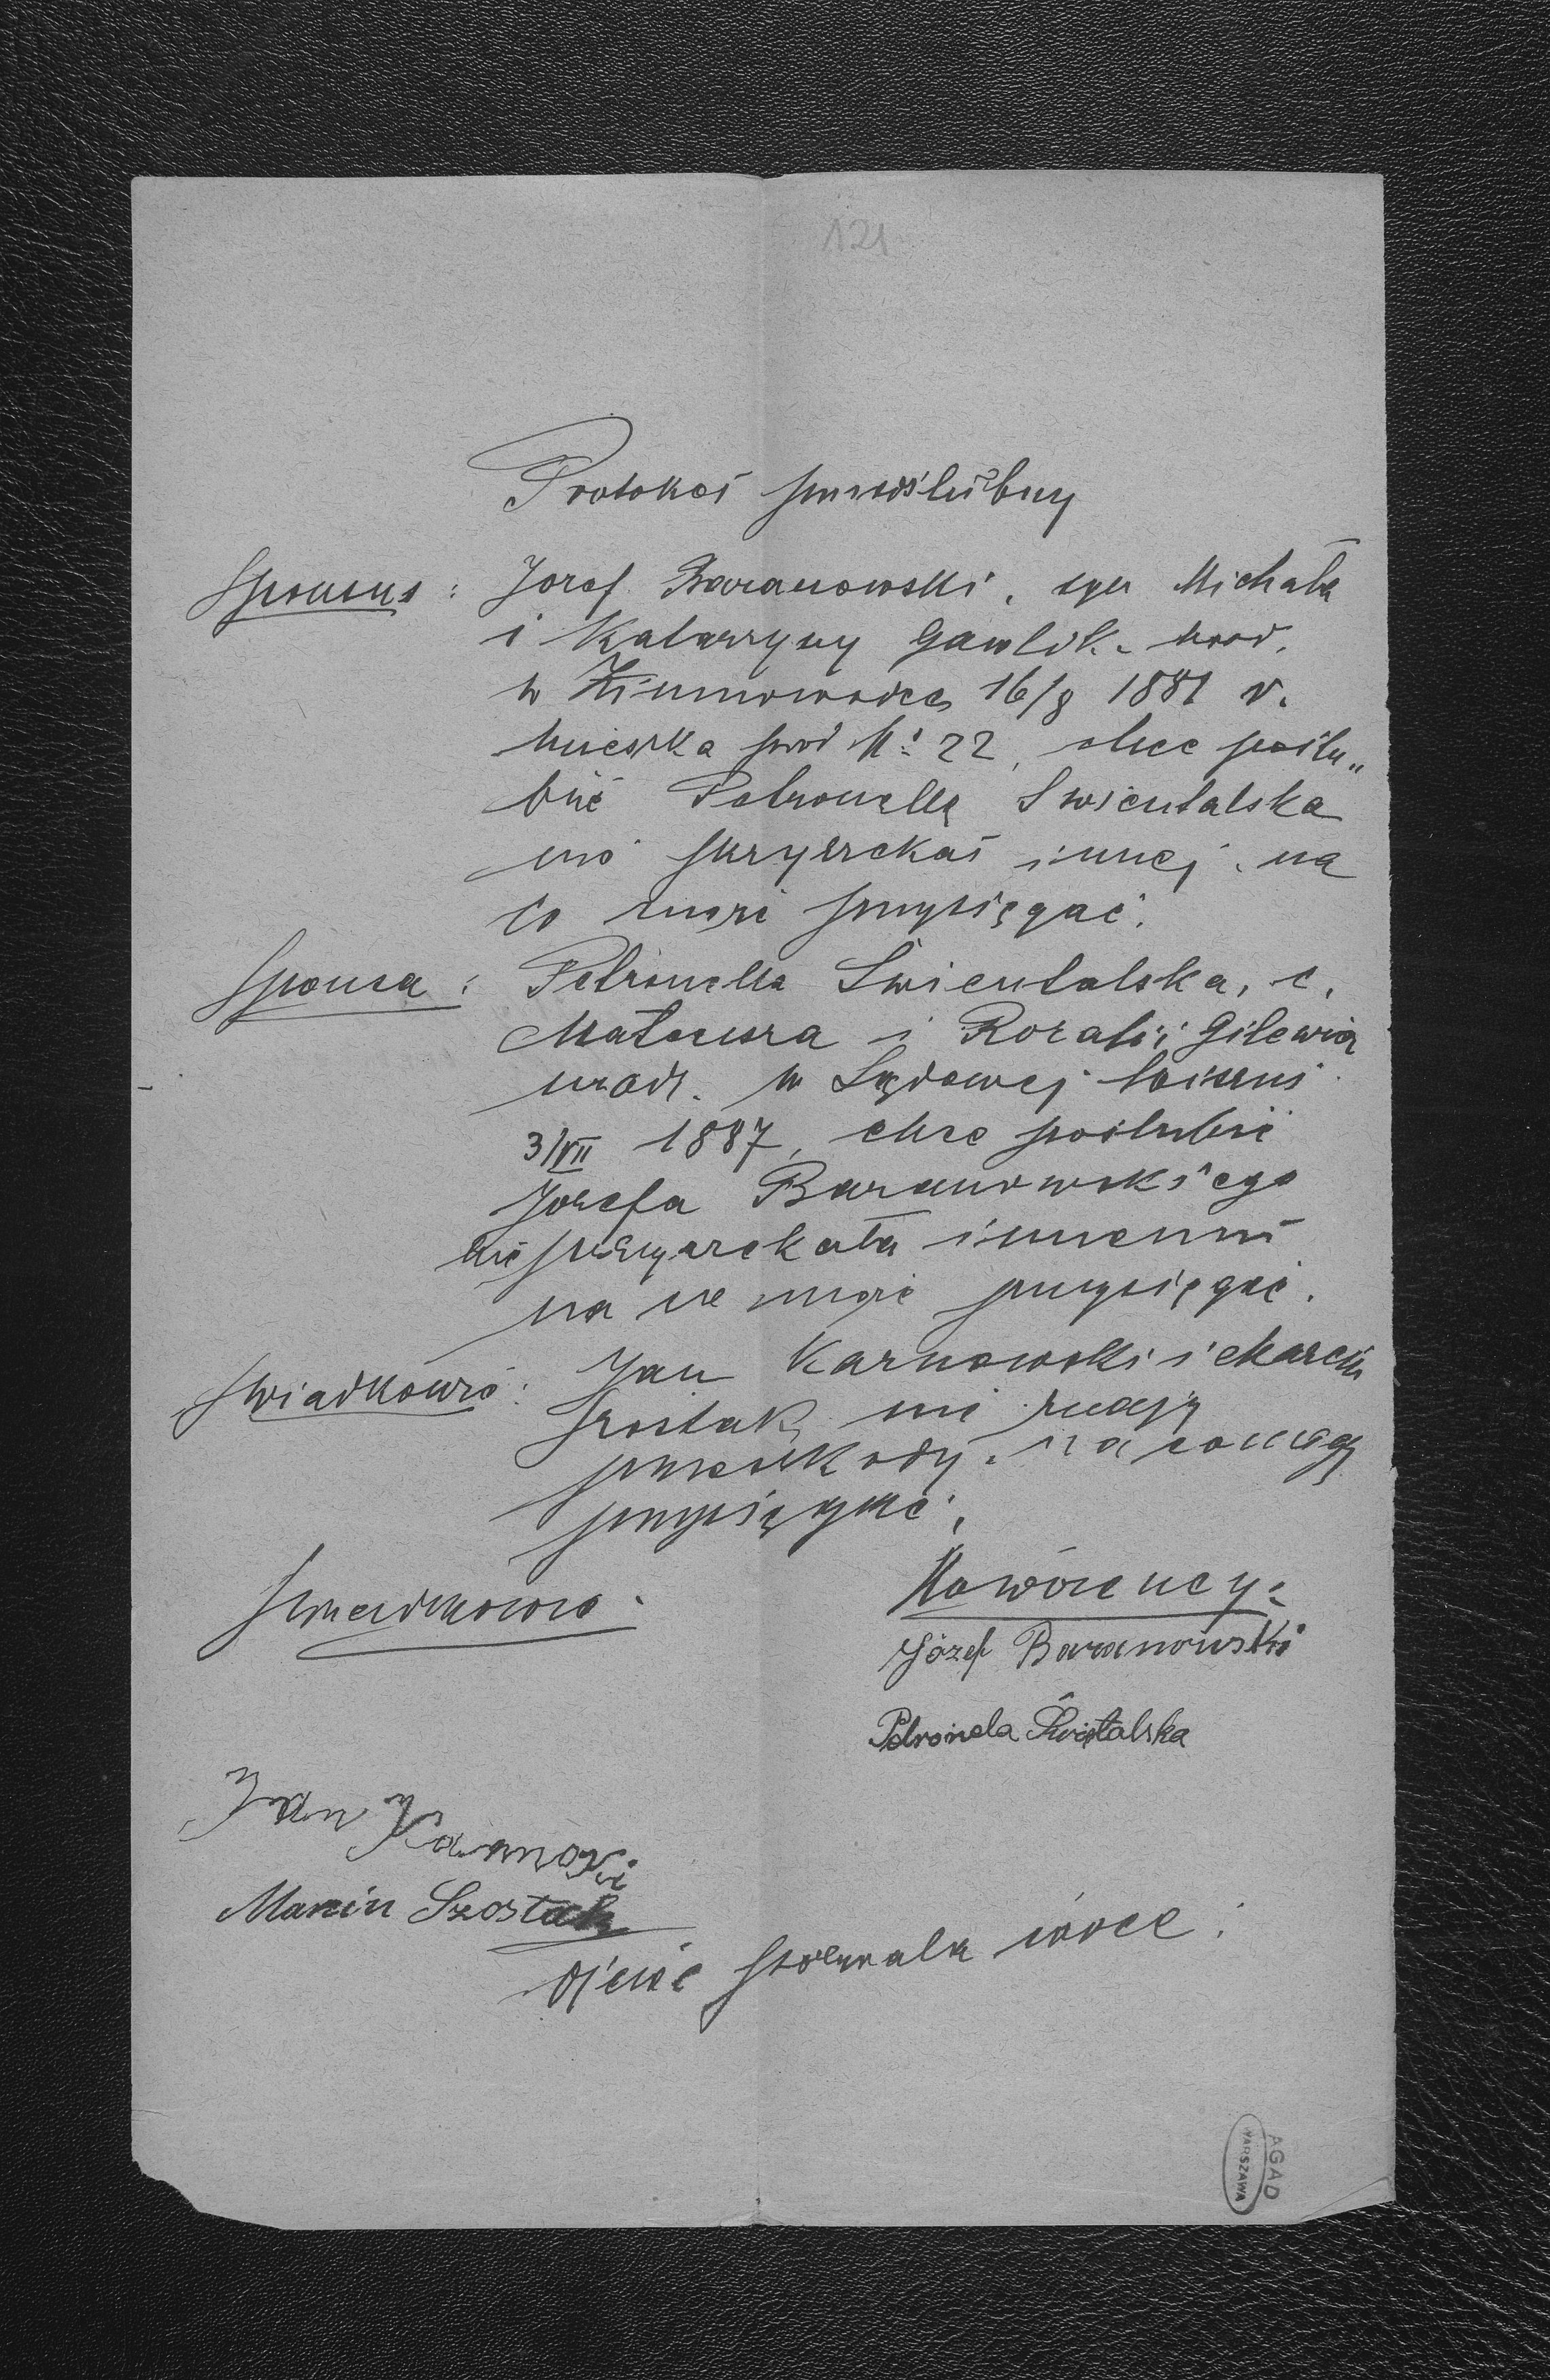 121
Protokół przedślubny
Sponsus: Jozef Baranowski, syn Michała
i Katarzyny Gawlik. urod.
w Zimnowodce 16/8 1881 r.
mieszka pod Nº 22, chce poślu„
bić Petronellę Swientalska
nie przyrzekał innej. na
to może przysięgać.
Sponsa: Petronella Świentalska, c.
Mateusza i Rozalii Gilewicz
urodz. w Sądowej Wiszni
3/VII 1887, chce poślubić
Jozefa Baranowskiego
nie przyrzekała innemu
na to może przysięgać.
Swiadkowie: Jan Karnowski i Marcin
Szostak, nie znają
przeszkody. na co mogą
przysięgać.
Swiadkowie.
Nowożeńcy:
Józef Baranowski
Petronela Świętalska
Jan Karnoski
Marcin Szostak
Ojciec pozwala córce:
AGAD
WARSZAWA